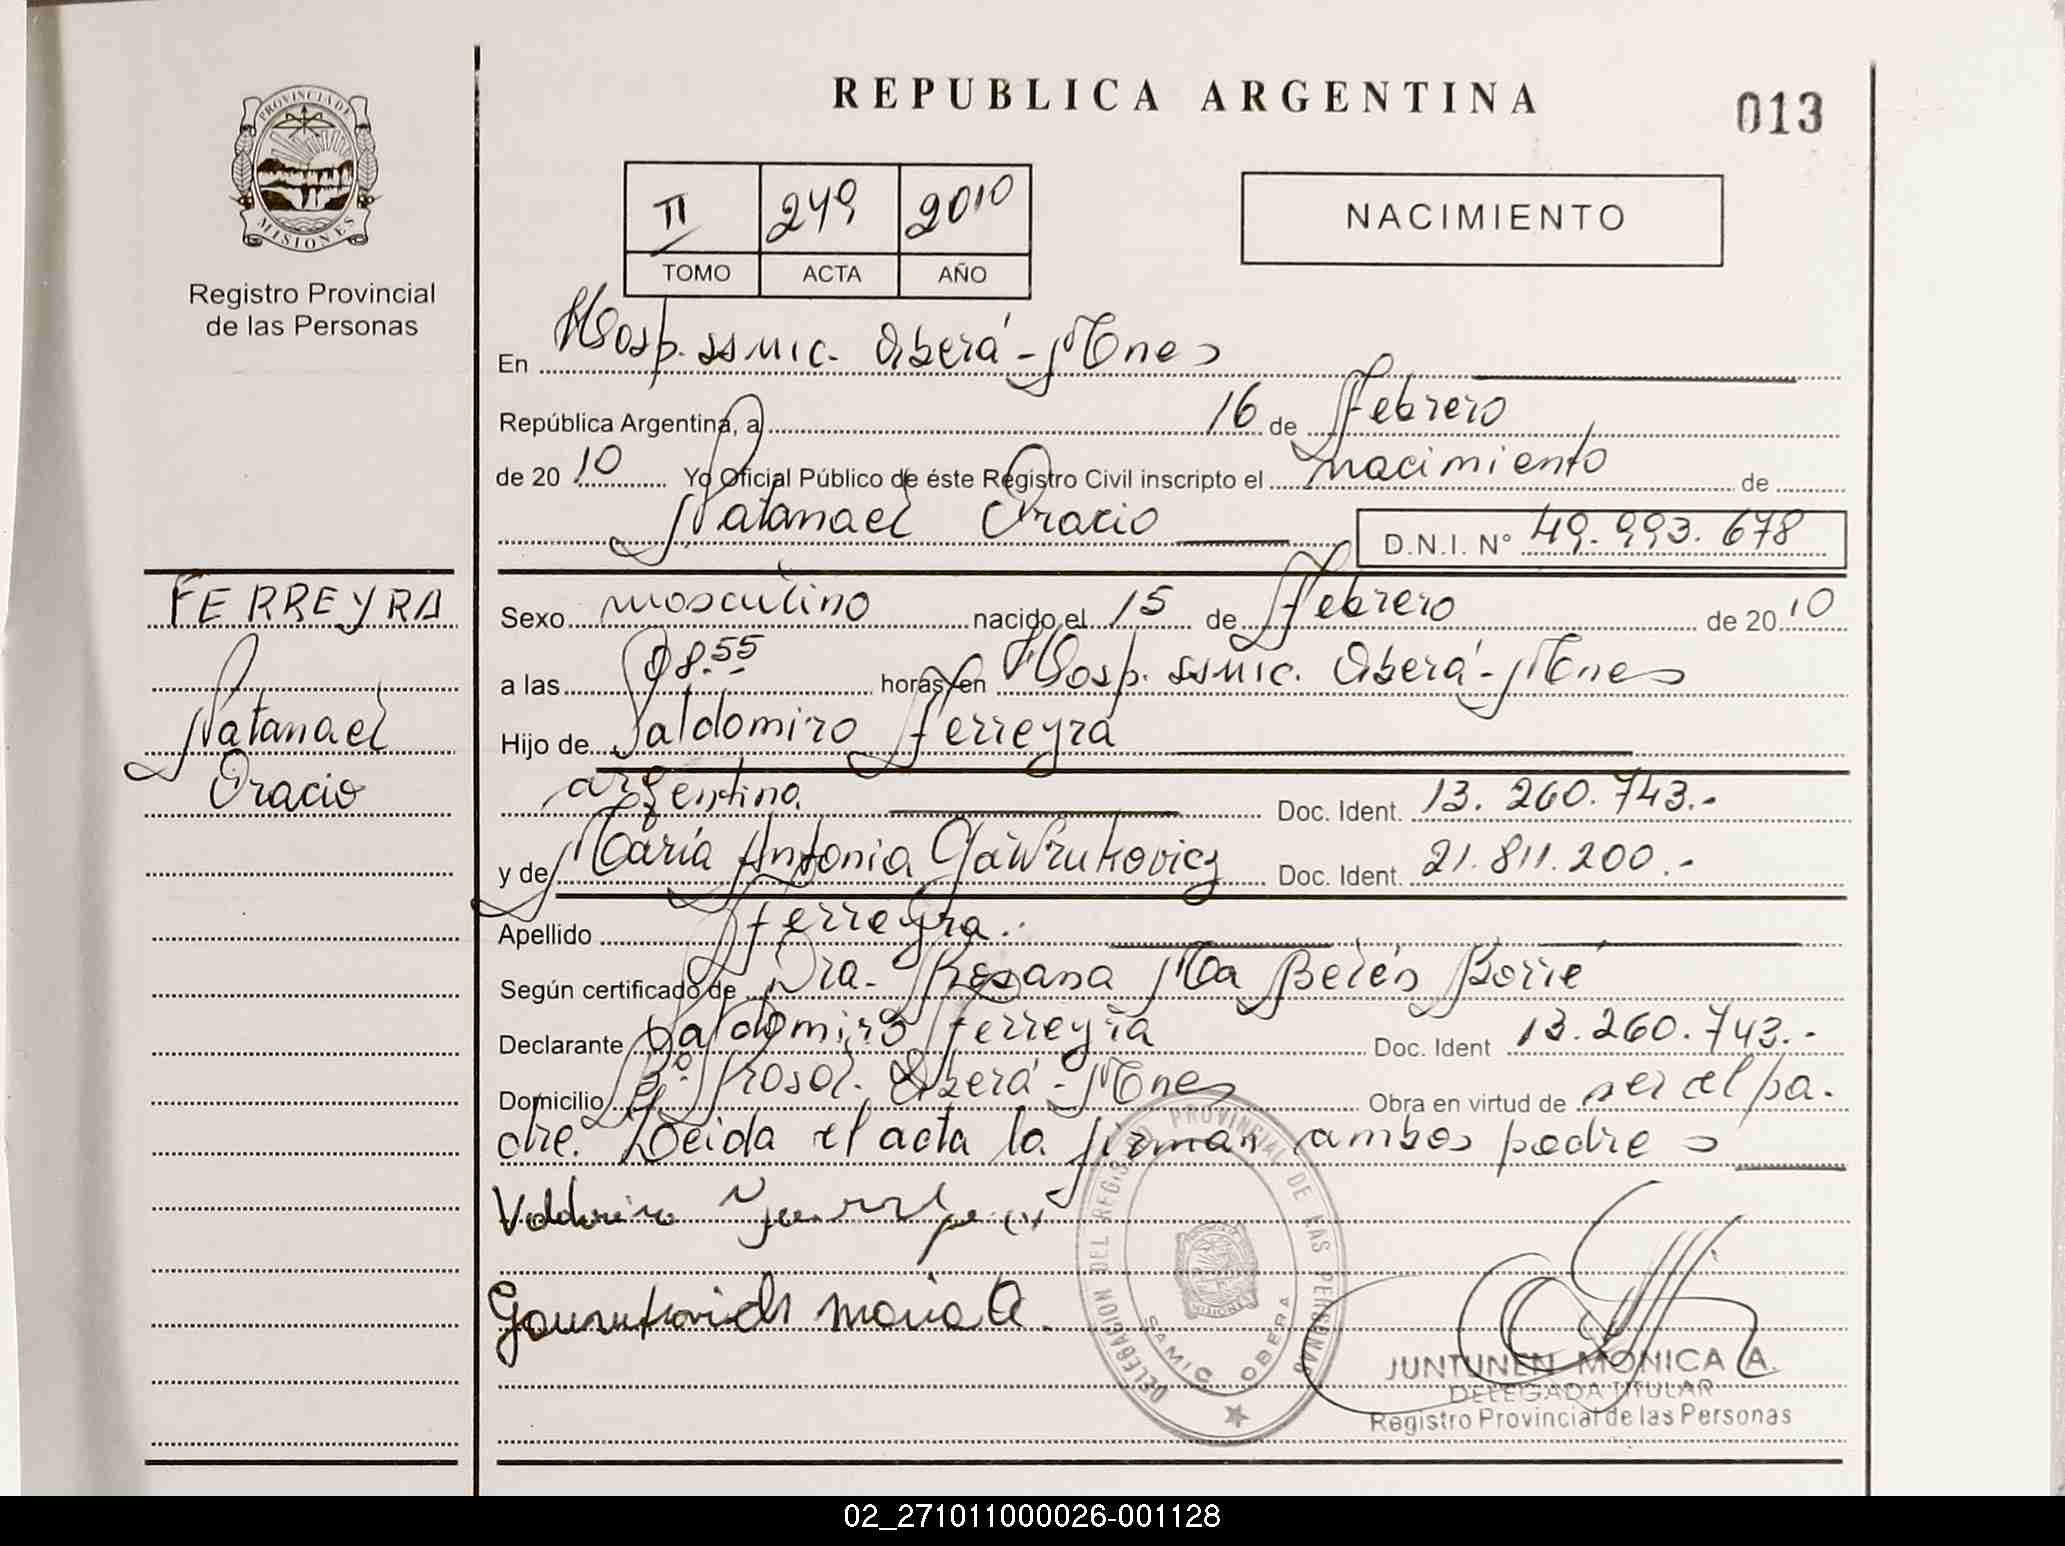 REPUBLICA ARGENTINA
013
PROVINCIA DE
MISIONES
Registro Provincial
de las Personas
II 249 2010
TOMO ACTA AÑO
NACIMIENTO
En Hosp. ssmic. Oberá - Mnes
República Argentina, a 16 de Febrero
de 20 10 Yo Oficial Público de éste Registro Civil inscripto el nacimiento de
Natanael Oracio D.N.I. Nº 49.993.678
FERREYRA
Natanael
Oracio
Sexo masculino nacido el 15 de Febrero de 20 10
a las 08.55 horas, en Hosp. ssmic. Oberá - Mnes
Hijo de Valdomiro Ferreyra
argentino Doc. Ident. 13.260.743.-
y de María Antonia Gawrukovicz Doc. Ident. 21.811.200.-
Apellido Ferreyra.
Según certificado de Dra. Rosana Ma Belén Borré
Declarante Valdomiro Ferreyra Doc. Ident 13.260.743.-
Domicilio Bº Krosol. Oberá - Mnes Obra en virtud de ser el pa.
dre. Leida el acta la firman ambos padres
DELEGACION DEL REGISTRO PROVINCIAL DE LAS PERSONAS
MISIONES
SAMIC OBERA
JUNTUNEN MONICA A.
DELEGADA TITULAR
Registro Provincial de las Personas
02_271011000026-001128